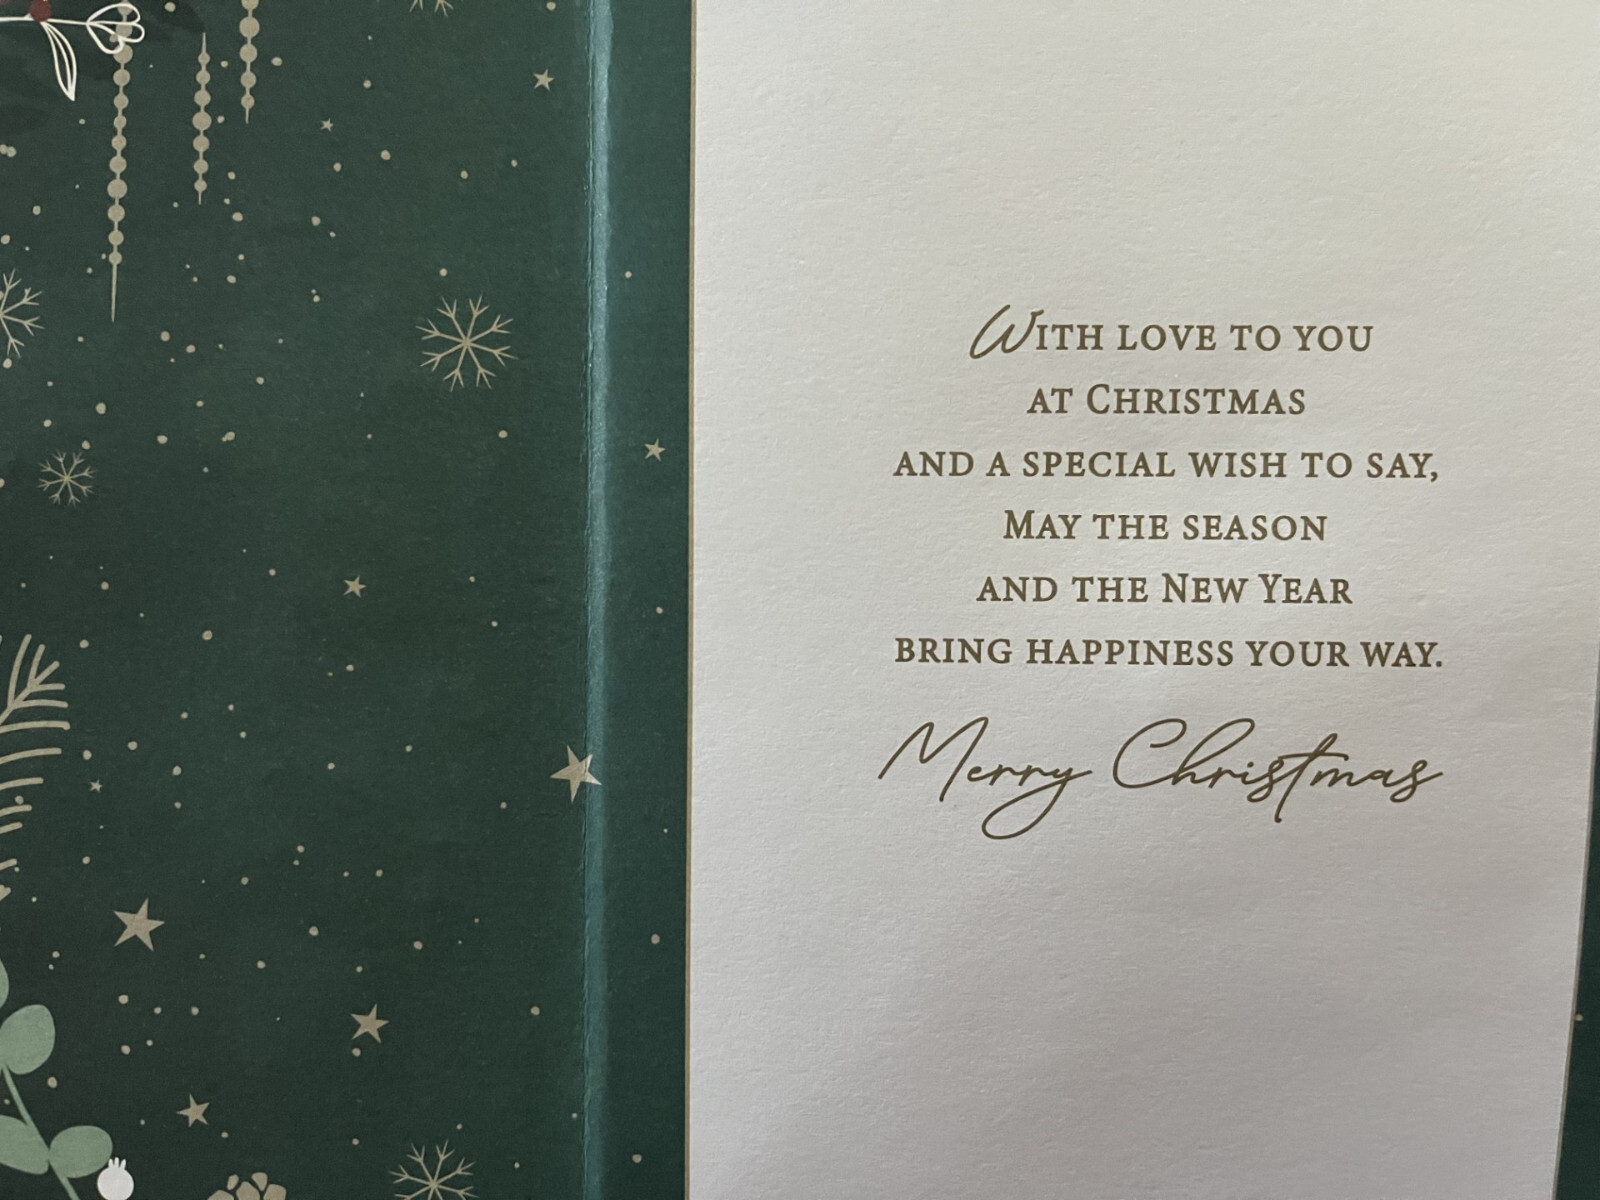 With love to you
at Christmas
and a special wish to say,
May the season
and the New Year
bring happiness your way.
Merry Christmas